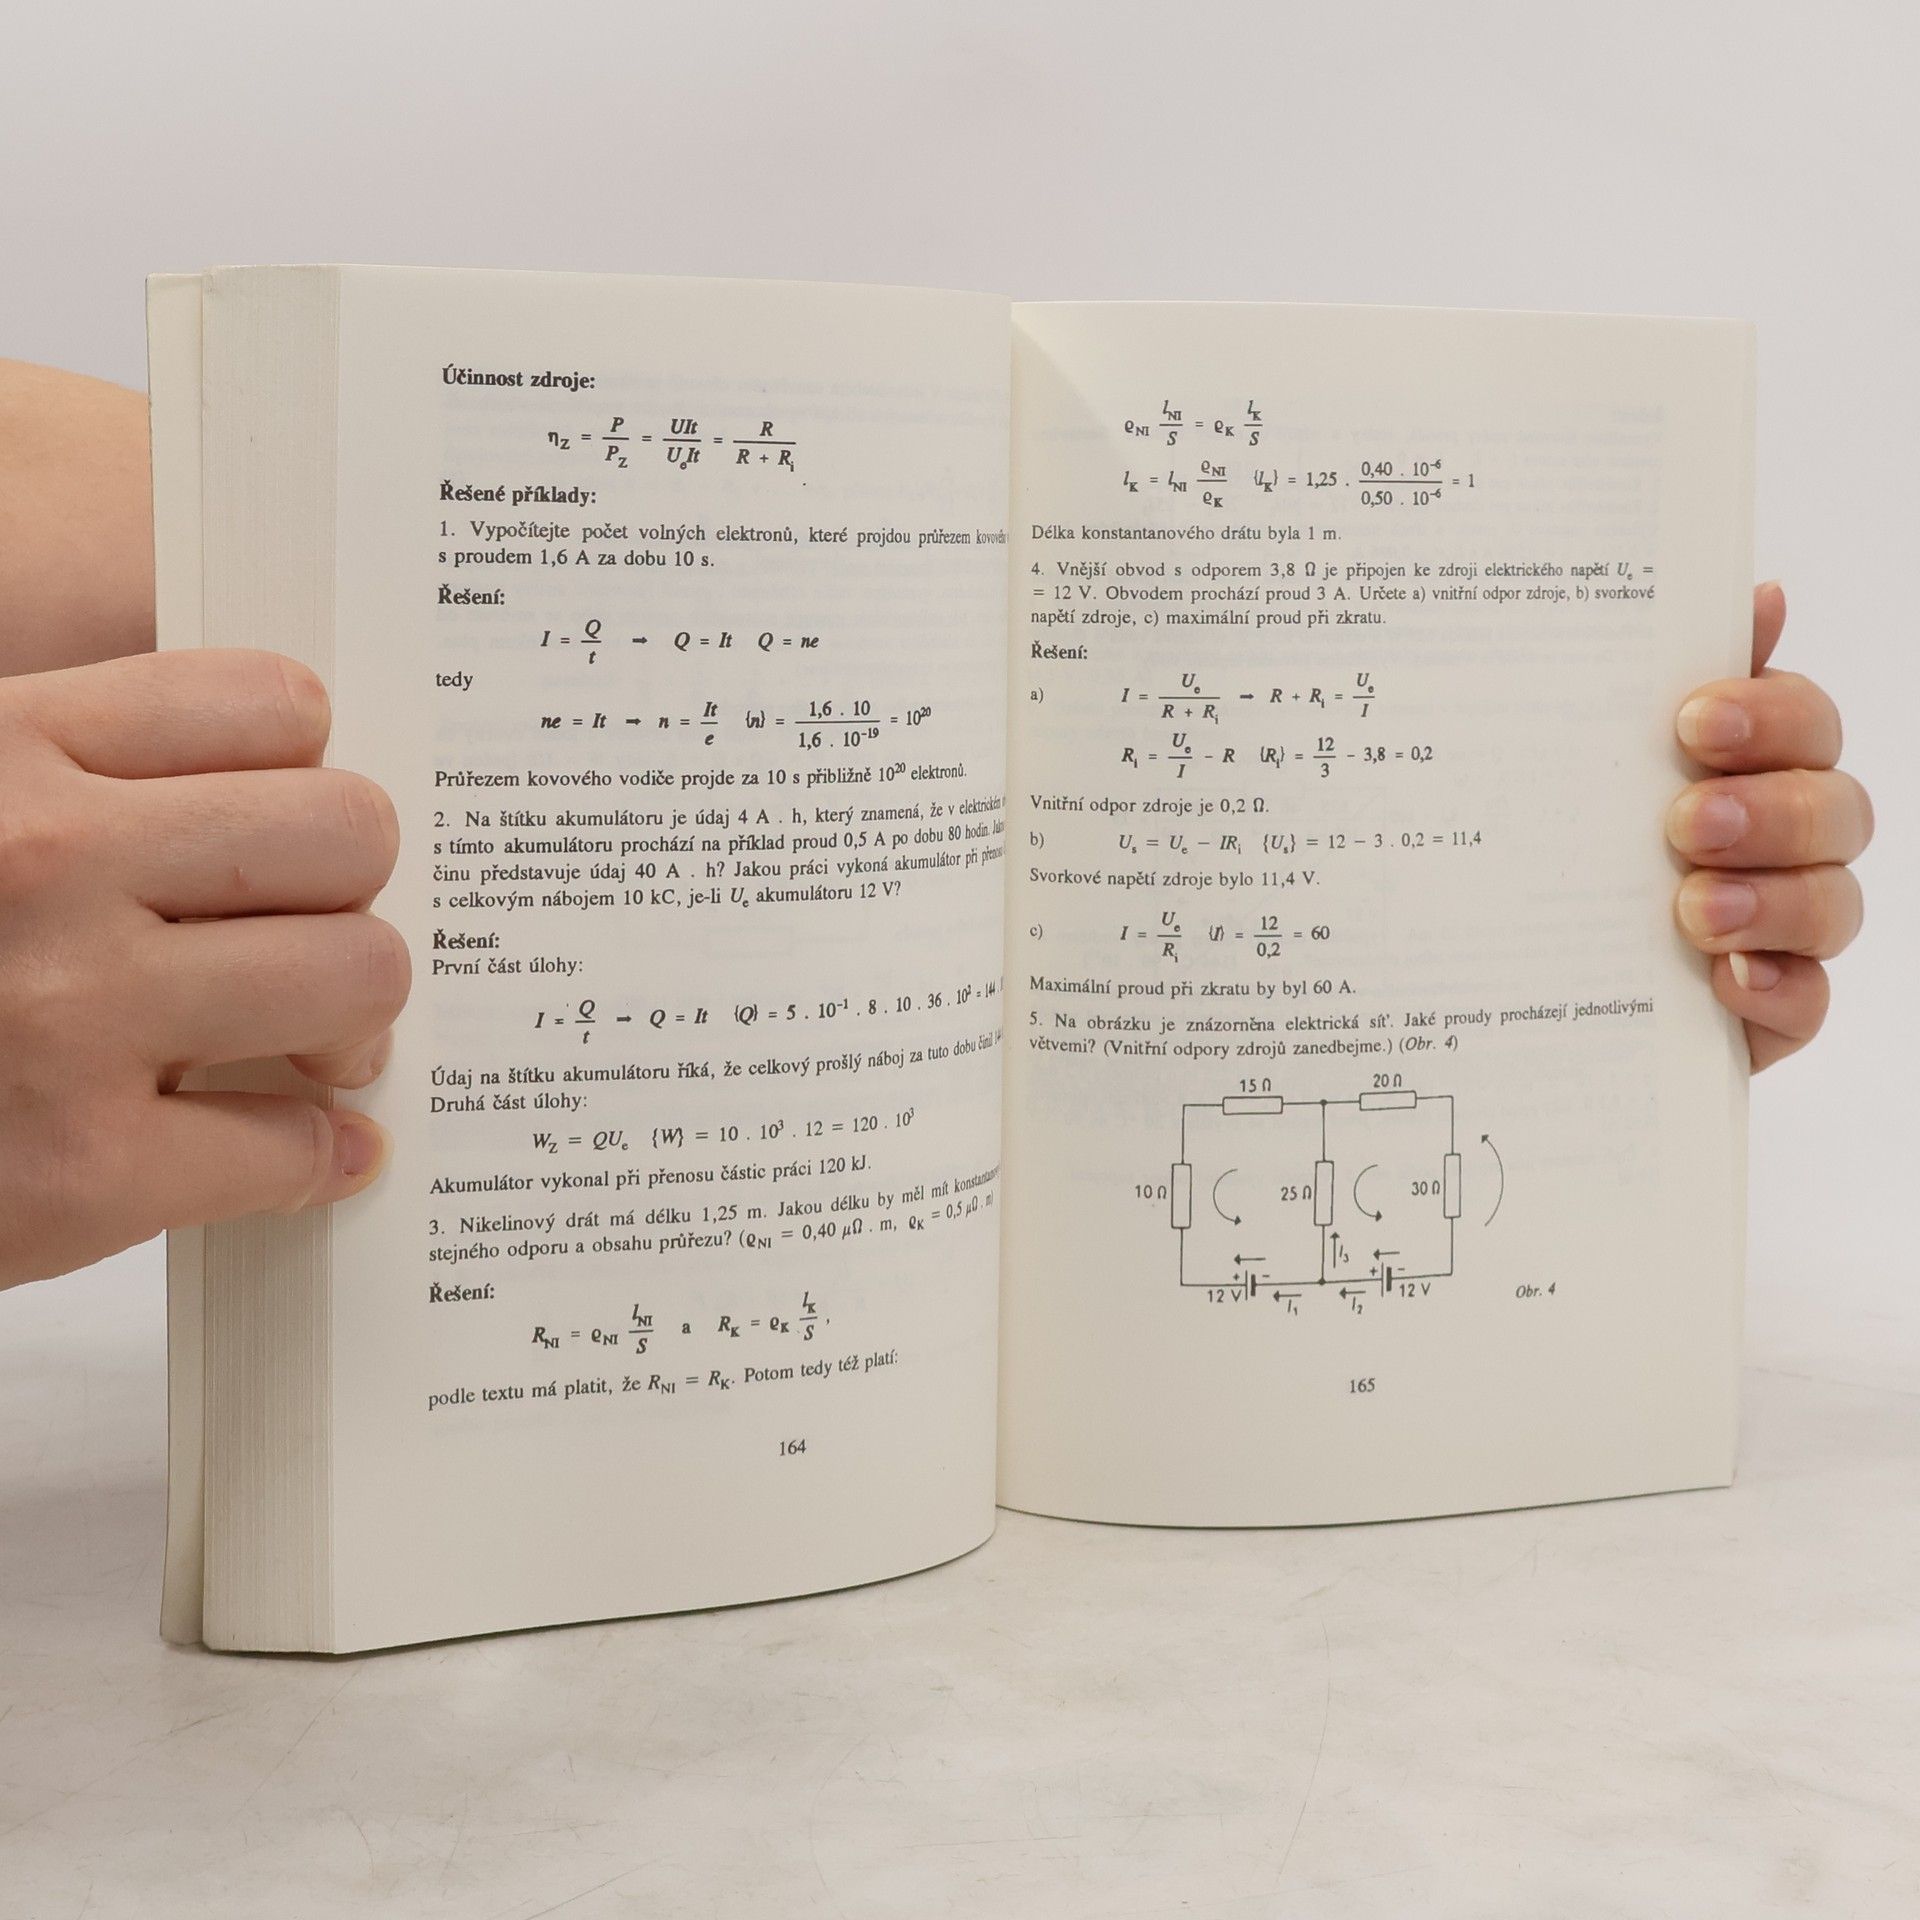 Účinnost zdroje:
η_Z = P / P_Z = UIt / U_e It = R / (R + R_i)
Řešené příklady:
1. Vypočítejte počet volných elektronů, které projdou průřezem
s proudem 1,6 A za dobu 10 s.
Řešení:
I = Q / t → Q = It Q = ne
tedy
ne = It → n = It / e {n} = 1,6 . 10 / 1,6 . 10⁻¹⁹ = 10²⁰
Průřezem kovového vodiče projde za 10 s přibližně 10²⁰ elektronů.
2. Na štítku akumulátoru je údaj 4 A . h, který znamená, že v elektrickém
s tímto akumulátoru prochází na příklad proud 0,5 A po dobu 80 hodin.
činu představuje údaj 40 A . h? Jakou práci vykoná akumulátor při
s celkovým nábojem 10 kC, je-li U_e akumulátoru 12 V?
Řešení:
První část úlohy:
I = Q / t → Q = It {Q} = 5 . 10⁻¹ . 8 . 10 . 36 . 10² = 144 .
Údaj na štítku akumulátoru říká, že celkový prošlý náboj za tuto dobu činil
Druhá část úlohy:
W_Z = QU_e {W} = 10 . 10³ . 12 = 120 . 10³
Akumulátor vykonal při přenosu částic práci 120 kJ.
3. Nikelinový drát má délku 1,25 m. Jakou délku by měl mít
stejného odporu a obsahu průřezu? (ϱ_NI = 0,40 μΩ . m, ϱ_K = 0,5 μΩ . m)
Řešení:
R_NI = ϱ_NI l_NI / S a R_K = ϱ_K l_K / S ,
podle textu má platit, že R_NI = R_K. Potom tedy též platí:
164
ϱ_NI l_NI / S = ϱ_K l_K / S
l_K = l_NI ϱ_NI / ϱ_K {l_K} = 1,25 . 0,40 . 10⁻⁶ / 0,50 . 10⁻⁶ = 1
Délka konstantanového drátu byla 1 m.
4. Vnější obvod s odporem 3,8 Ω je připojen ke zdroji elektrického napětí U_e =
= 12 V. Obvodem prochází proud 3 A. Určete a) vnitřní odpor zdroje, b) svorkové
napětí zdroje, c) maximální proud při zkratu.
Řešení:
a) I = U_e / (R + R_i) → R + R_i = U_e / I
R_i = U_e / I − R {R_i} = 12 / 3 − 3,8 = 0,2
Vnitřní odpor zdroje je 0,2 Ω.
b) U_s = U_e − IR_i {U_s} = 12 − 3 . 0,2 = 11,4
Svorkové napětí zdroje bylo 11,4 V.
c) I = U_e / R_i {I} = 12 / 0,2 = 60
Maximální proud při zkratu by byl 60 A.
5. Na obrázku je znázorněna elektrická síť. Jaké proudy procházejí jednotlivými
větvemi? (Vnitřní odpory zdrojů zanedbejme.) (Obr. 4)
15 Ω 20 Ω
10 Ω 25 Ω 30 Ω
I₃
+ − + −
12 V I₁ I₂ 12 V
Obr. 4
165